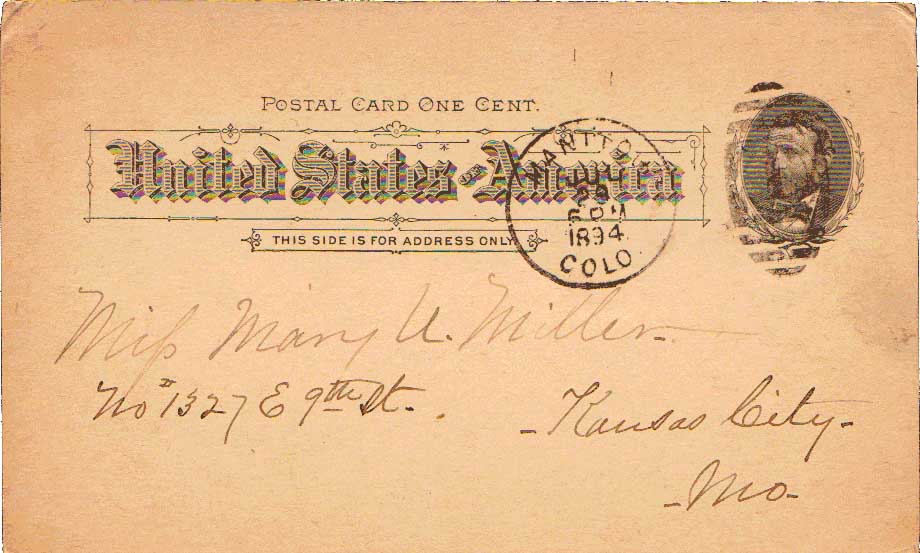 POSTAL CARD ONE CENT.
United States of America
THIS SIDE IS FOR ADDRESS ONLY.
MANITOU
JUL
25
6 PM
1894
COLO.
Miss Mary U. Miller
No 1327 E 9th St.
Kansas City
Mo